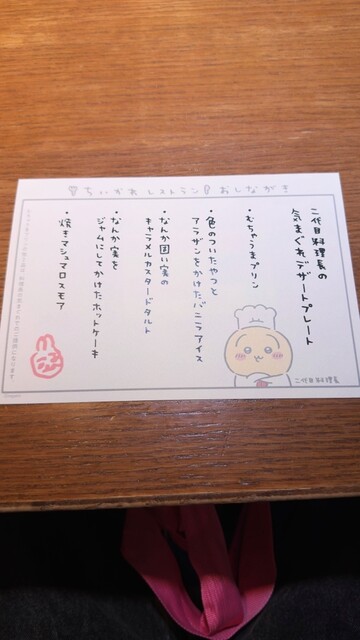 ちいかわ レストラン おしながき
二代目料理長の
気まぐれデザートプレート
・むちゃうまプリン
・色のついたやつと
アラザンをかけたバニラアイス
・なんか固い実の
キャラメルカスタードタルト
・なんか実を
ジャムにしてかけたホットケーキ
・焼きマシュマロスモア
二代目料理長